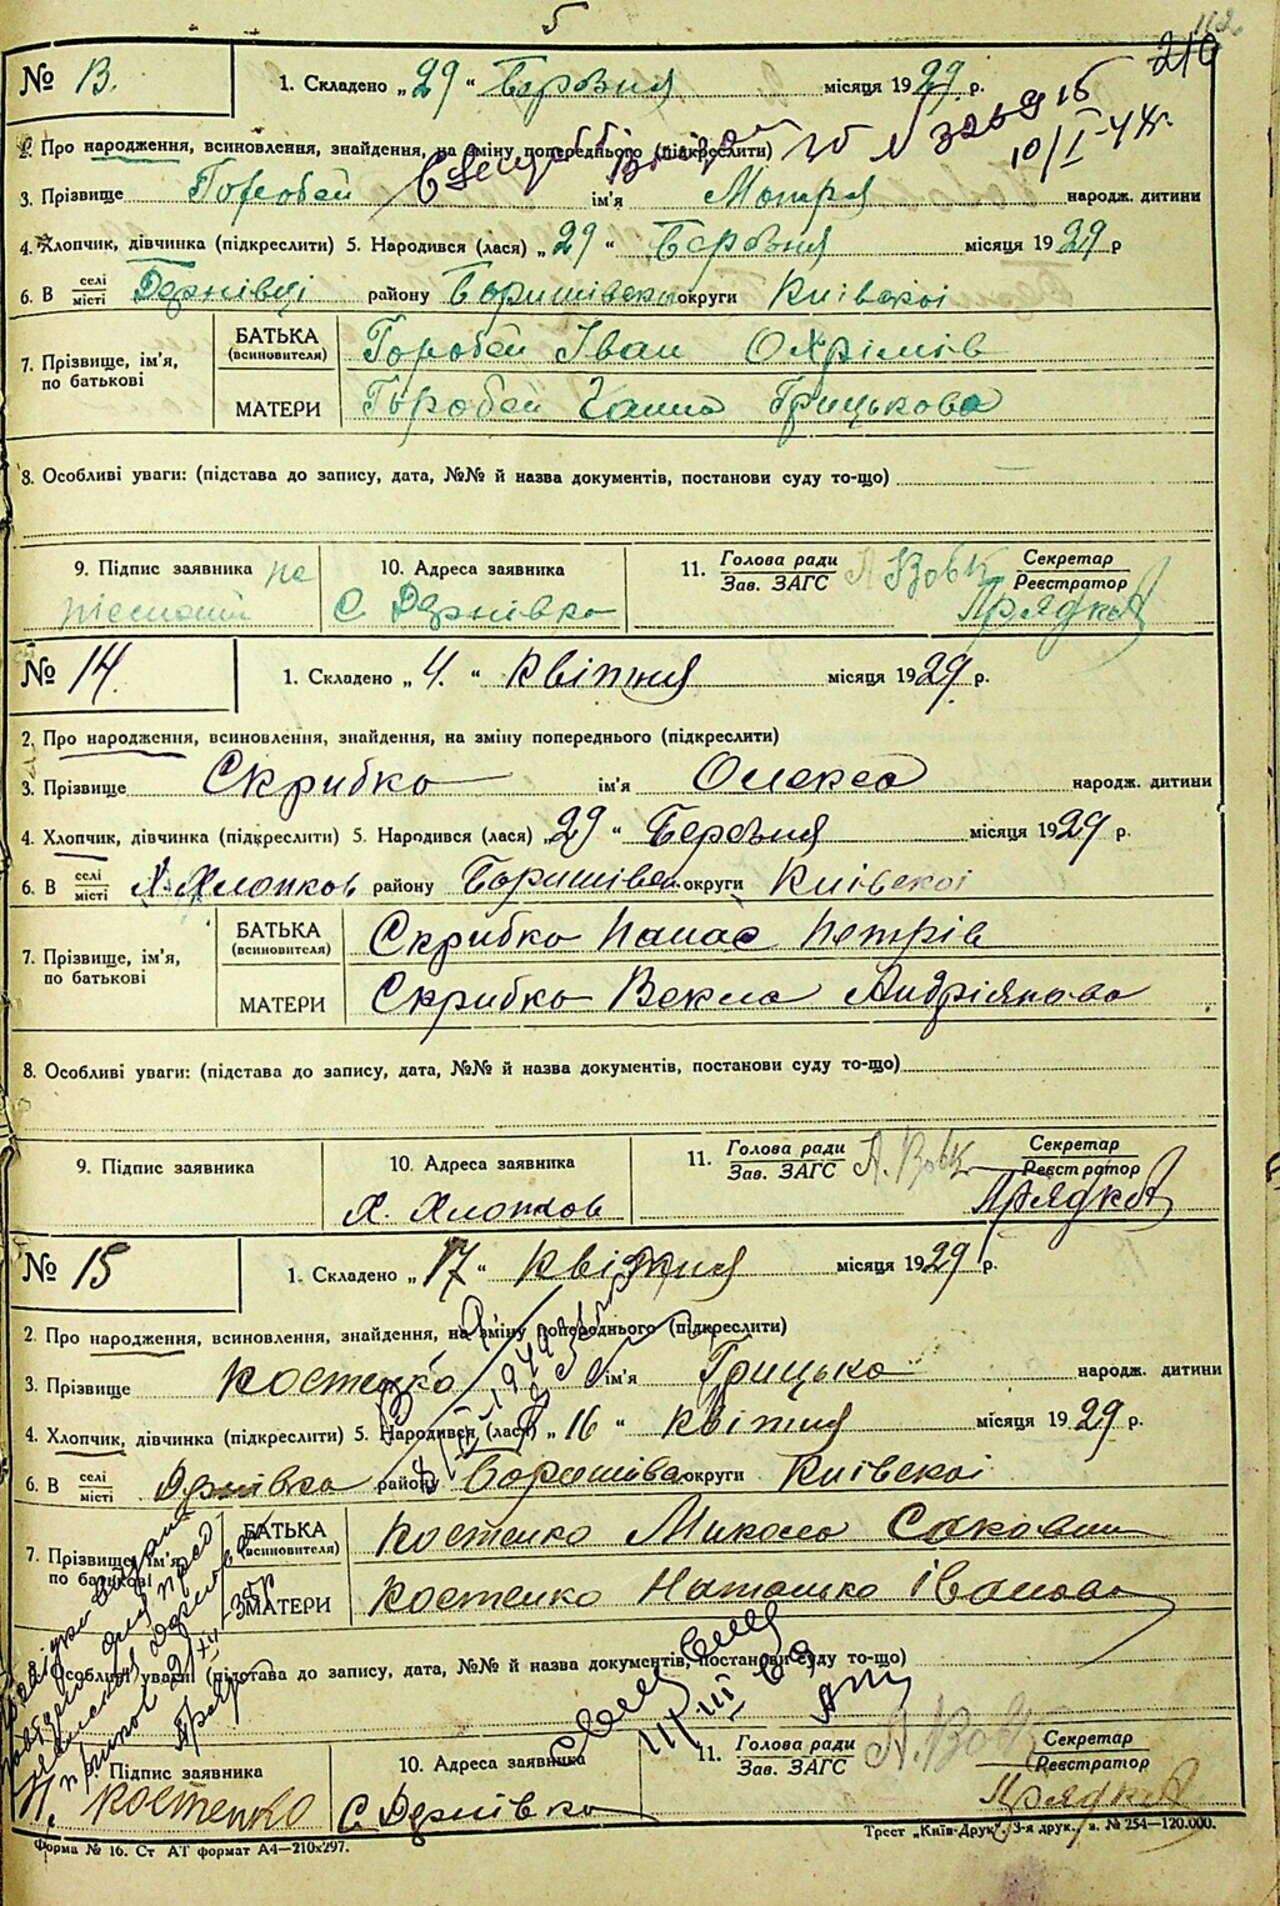 5
112
210
№ 13. 1. Складено „29“ Березня місяця 1929 р.
2. Про народження, всиновлення, знайдення, на зміну попереднього (підкреслити)
№ 3269 15
10/I-44г.
3. Прізвище Горобей ім'я Мотря народж. дитини
4. Хлопчик, дівчинка (підкреслити) 5. Народився (лася) „29“ Березня місяця 1929 р
6. В селі/місті Дернівці району Баришівськ округи Київскоі
7. Прізвище, ім'я, по батькові
БАТЬКА (всиновителя) Горобей Іван Охрімів
МАТЕРИ Горобей Ганна Грицькова
8. Особливі уваги: (підстава до запису, дата, №№ й назва документів, постанови суду то-що) —
9. Підпис заявника не
10. Адреса заявника с. Дернівка
11. Голова ради/Зав. ЗАГС А Вовк Секретар/Реєстратор Прядка
№ 14. 1. Складено „4.“ Квітня місяця 1929 р.
2. Про народження, всиновлення, знайдення, на зміну попереднього (підкреслити)
3. Прізвище Скрибка ім'я Олекса народж. дитини
4. Хлопчик, дівчинка (підкреслити) 5. Народився (лася) „29“ Березня місяця 1929 р.
6. В селі/місті Х. Хлопков району Баришівськ. округи Київскоі
7. Прізвище, ім'я, по батькові
БАТЬКА (всиновителя) Скрибка Панас Петрів
МАТЕРИ Скрибка Векла Андріянова
8. Особливі уваги: (підстава до запису, дата, №№ й назва документів, постанови суду то-що)
9. Підпис заявника
10. Адреса заявника Х. Хлопков
11. Голова ради/Зав. ЗАГС А. Вовк Секретар/Реєстратор Прядка
№ 15 1. Складено „17“ Квітня місяця 1929 р.
2. Про народження, всиновлення, знайдення, на зміну попереднього (підкреслити)
3. Прізвище Костенко ім'я Грицько народж. дитини
4. Хлопчик, дівчинка (підкреслити) 5. Народився (лася) „16“ Квітня місяця 1929 р.
6. В селі/місті Дернівка району Баришівськ округи Київскоі
7. Прізвище, ім'я, по батькові
БАТЬКА (всиновителя) Костенко Микола Сакович
МАТЕРИ Костенко Наталька Іванова
8. Особливі уваги: (підстава до запису, дата, №№ й назва документів, постанови суду то-що)
9. Підпис заявника Н. Костенко
10. Адреса заявника с. Дернівка
11. Голова ради/Зав. ЗАГС А. Вовк Секретар/Реєстратор Прядка
Форма № 16. Ст АТ формат А4—210х297.
Трест „Київ-Друк“. 3-я друк., з. № 254—120.000.